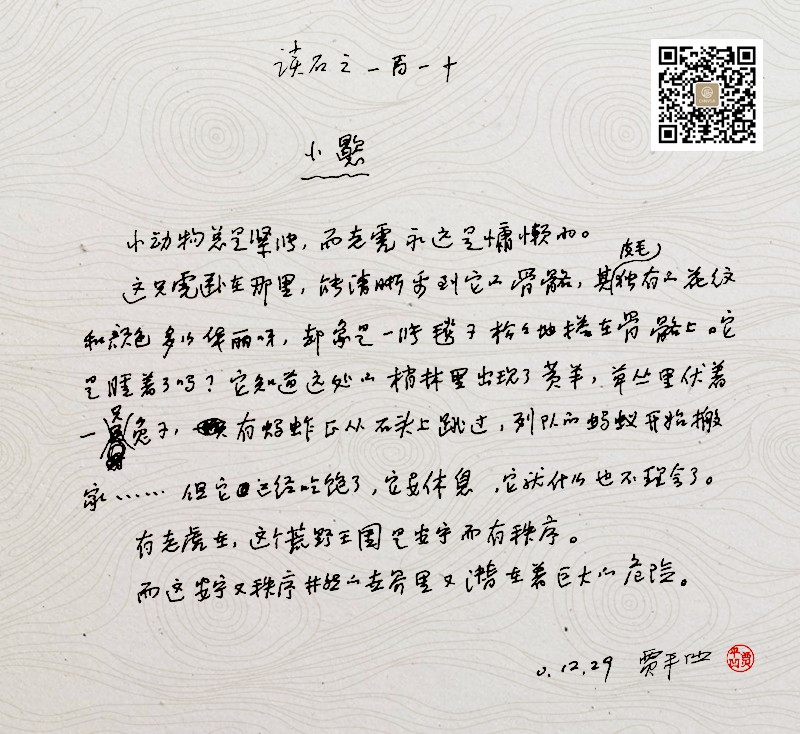 读石之一百一十
小憩
小动物总是紧张，而老虎永远是慵懒的。
这只虎卧在那里，能清晰看到它的骨骼，其皮毛独有的花纹
和颜色多么华丽呀，却象是一张毯子松松地搭在骨骼上。它
是睡着了吗？它知道远处的梢林里出现了黄羊，草丛里伏着
一只兔子，有蚂蚱正从石头上跳过，列队的蚂蚁开始搬
家……但它已经吃饱了，它要休息，它就什么也不理会了。
有老虎在，这个荒野王国是安宁而有秩序。
而这安宁又秩序井然的世界里又潜在着巨大的危险。
12.29 贾平凹